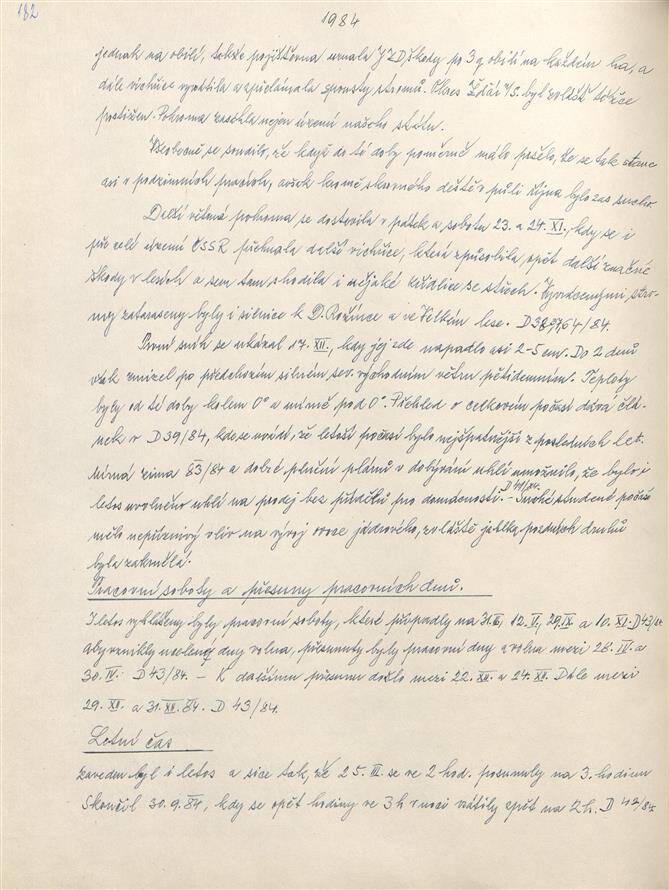 182
1984
jednak na obilí, takže pojišťovna uznala JZD škody po 3 q obilí na každém ha, a
dále vichřice vyvrátila a zpřelámala spousty stromů. Okres Žďár n/S. byl zvlášť těžce
postižen. Pohroma zasáhla nejen území našeho státu.
Všeobecně se soudilo, že když do té doby poměrně málo pršelo, že se tak stane
asi v podzimních pracích, avšak kromě skrovného deště v půli října bylo zas sucho.
Další větrná pohroma se dostavila v pátek a sobotu 23. a 24. XI., kdy se i
přes celé území ČSSR přehnala další vichřice, která způsobila opět další značné
škody v lesích a sem tam shodila i nějaké křidlice se střech. Vyvrácenými stro-
my zataraseny byly i silnice k D. Rožínce a ve Velkém lese. D 38,
První sníh se ukázal 17. XII., kdy jej zde napadlo asi 2-5 cm. Do 2 dnů
však zmizel po předchozím silném sev. východním větru pětidenním. Teploty
byly od té doby kolem 0° a mírně pod 0°. Přehled o celkovém počasí dává člá-
nek v D 39/84, kde se uvádí, že letošní počasí bylo nejšpatnější z posledních let.
Mírná zima 83/84 a dobré plnění plánů v dobývání uhlí umožnilo, že bylo i
letos uvolněno uhlí na prodej bez přídělů pro domácnosti. - studené počasí
mělo nepříznivý vliv na vývoj ovoce jádrového, zvláště jablka pozdních druhů
byla zakrnělá.
Pracovní soboty a přesuny pracovních dnů.
I letos vyhlášeny byly pracovní soboty, které připadly na 12. V., 29. IX. a 10. XI. D 43/84
aby vznikly ucelené dny volna, přesunuty byly pracovní dny a volna mezi 28. IV. a
30. IV. D 43/84. - K dalšímu přesunu došlo mezi 22. XII. a 24. XII. Dále mezi
29. XII. a 31. XII. 84. D 43/84.
Letní čas
zaveden byl i letos a sice tak, že 25. III. se ve 2 hod. posunuly na 3. hodinu
Skončil 30.9.84, kdy se opět hodiny ve 3 h v noci vrátily zpět na 2 h. D 42/84.